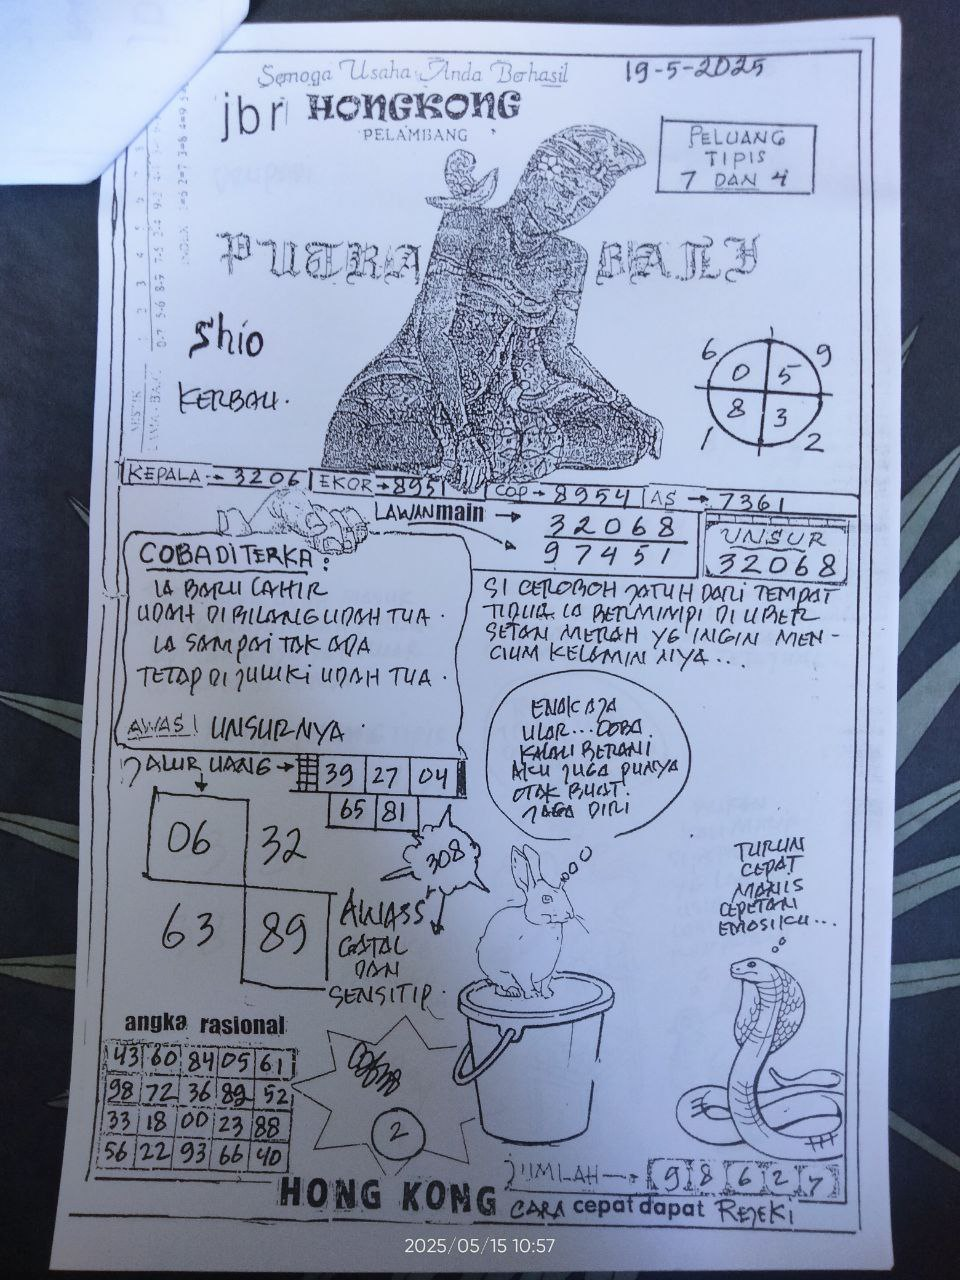 Semoga Usaha Anda Berhasil
19-5-2025
jbr HONGKONG
PELAMBANG
PELUANG
TIPIS
7 DAN 4
PUTRA BALI
Shio
KERBAU.
6 9
0 5
8 3
1 2
KEPALA 3206 EKOR 8951 COP 8954 AS 7361
LAWAN main 32068
97451
UNSUR
32068
COBA DITERKA:
IA BARU LAHIR
UDAH DI BILANG UDAH TUA.
IA SAMPAI TAK ADA
TETAP DI JULUKI UDAH TUA.
AWAS! UNSURNYA.
SI CEROBOH JATUH DARI TEMPAT
TIDUR IA BERMIMPI DI UBER
SETAN MERAH YG INGIN MEN-
CIUM KELAMIN NYA...
ENAK AJA
ULAR... COBA.
KALAU BERANI
AKU JUGA PUNYA
OTAK BUAT.
JAGA DIRI
JALUR UANG 39 27 04
65 81
06 32
63 89
308
AWASS
GATAL
DAN
SENSITIP.
TURUN
CEPAT
MANIS
CEPETAN
EMOSIKU...
angka rasional
43 60 84 05 61
98 72 36 89 52
33 18 00 23 88
56 22 93 66 40
2
JUMLAH 9 8 6 2 7
HONG KONG CARA cepat dapat REJEKI
2025/05/15 10:57